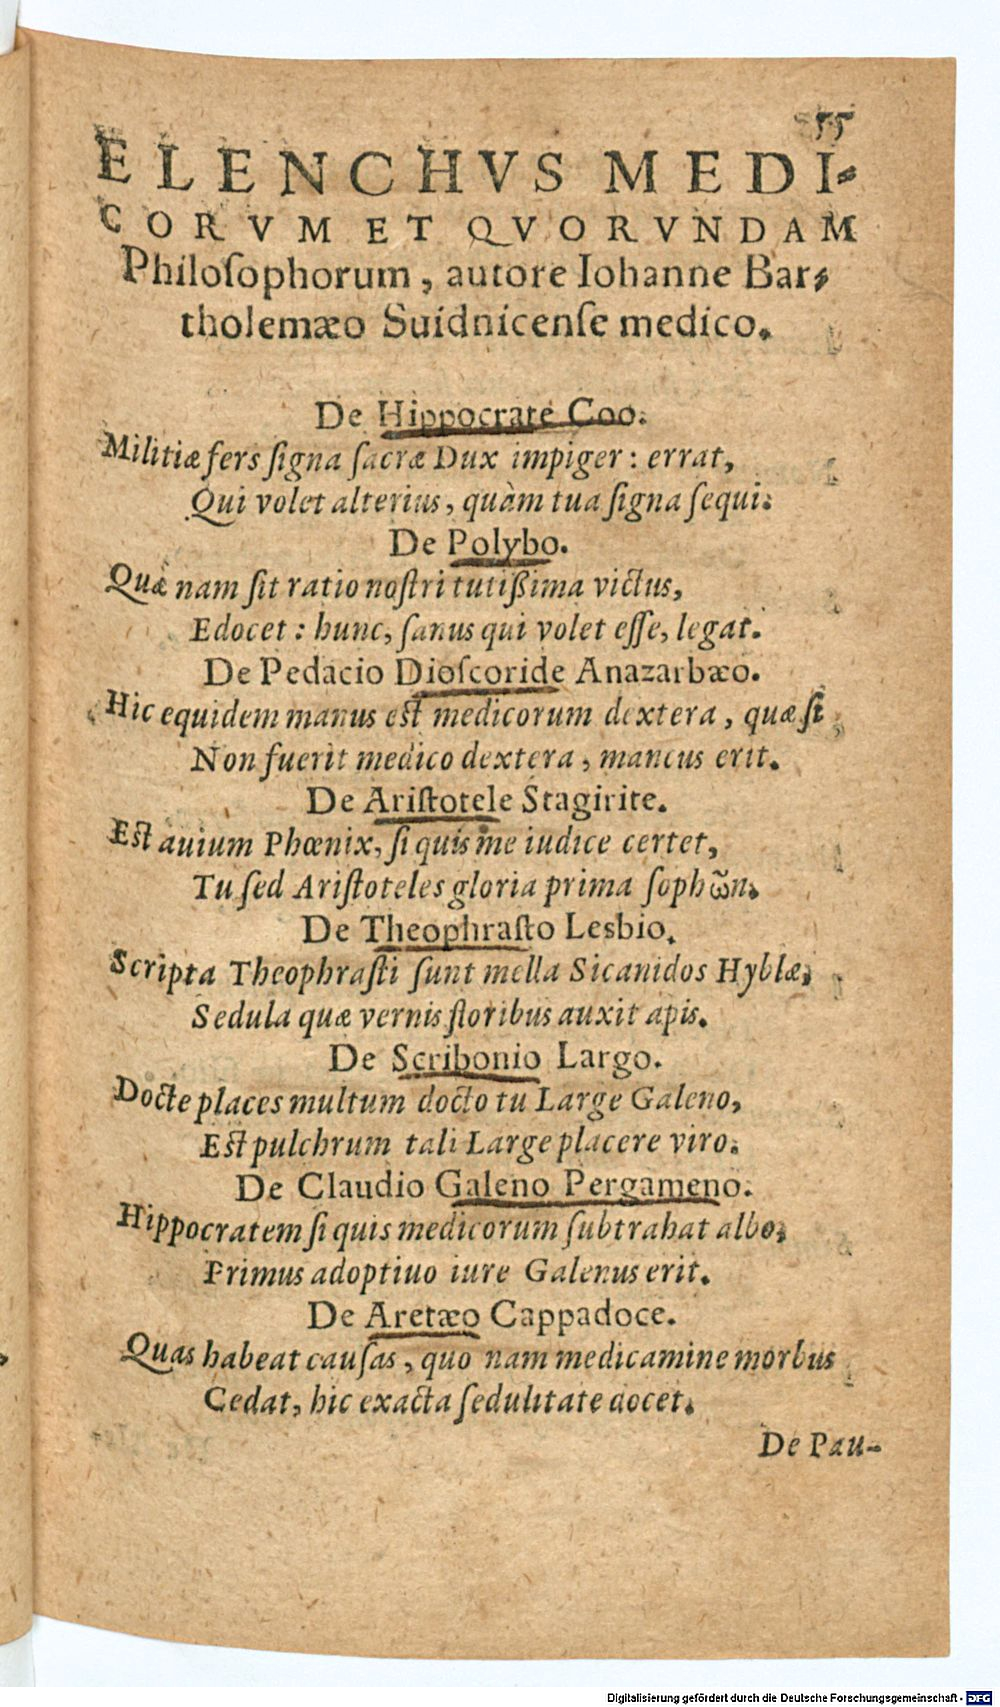 55
ELENCHVS MEDI-
CORVM ET QVORVNDAM
Philoſophorum, autore Iohanne Bar-
tholemæo Suidnicenſe medico.
De Hippocrate Coo.
Militiæ fers ſigna ſacræ Dux impiger: errat,
Qui volet alterius, quàm tua ſigna ſequi.
De Polybo.
Quæ nam ſit ratio noſtri tutißima victus,
Edocet: hunc, ſanus qui volet eſſe, legat.
De Pedacio Dioſcoride Anazarbæo.
Hic equidem manus eſt medicorum dextera, quæ ſi
Non fuerit medico dextera, mancus erit.
De Ariſtotele Stagirite.
Eſt auium Phœnix, ſi quis me iudice certet,
Tu ſed Ariſtoteles gloria prima ſophῶn.
De Theophraſto Lesbio.
Scripta Theophraſti ſunt mella Sicanidos Hyblæ,
Sedula quæ vernis floribus auxit apis.
De Scribonio Largo.
Docte places multum docto tu Large Galeno,
Eſt pulchrum tali Large placere viro.
De Claudio Galeno Pergameno.
Hippocratem ſi quis medicorum ſubtrahat albo,
Primus adoptiuo iure Galenus erit.
De Aretæo Cappadoce.
Quas habeat cauſas, quo nam medicamine morbus
Cedat, hic exacta ſedulitate docet.
De Pau-
Digitalisierung gefördert durch die Deutsche Forschungsgemeinschaft - DFG